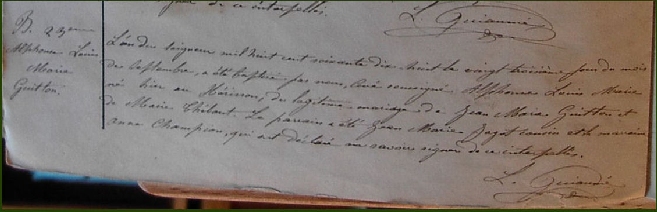 de ce interpellés.
L. Guianné
B. 23
Alphonse Louis
Marie
Guitton
L'an du Seigneur mil huit cent soixante dix huit le vingt troisième jour du mois
de Septembre, a été baptisé par nous, Curé soussigné, Alphonse Louis Marie
né hier au Buisson, du légitime mariage de Jean Marie Guitton et
de Marie Thébaut. Le parrain a été Jean Marie et la marraine
Anne Champion, qui ont déclaré ne savoir signer de ce interpellés.
L. Guianné